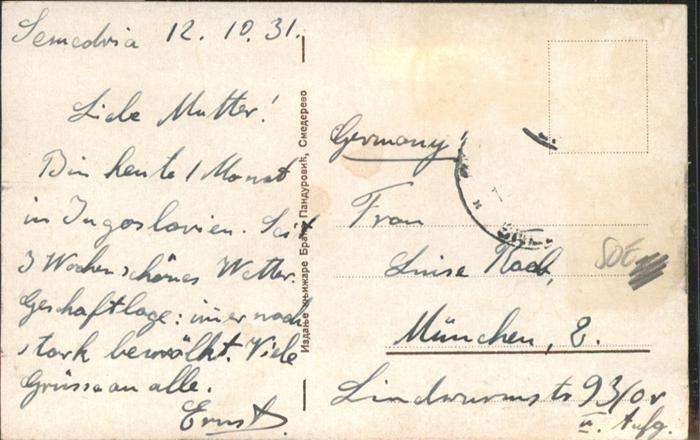 Semedria 12. 10. 31.
Liebe Mutter!
Bin heute 1 Monat
in Jugoslavien. Seit
3 Wochen schönes Wetter.
Geschäftlage: immer noch
stark bewölkt. Viele
Grüsse an alle.
Ernst.
Издање књижаре Браће Пандуровић, Смедерево
Germany!
Frau
Luise Koch,
München, 2.
Lindwurmstr 93/0r
II. Aufg.